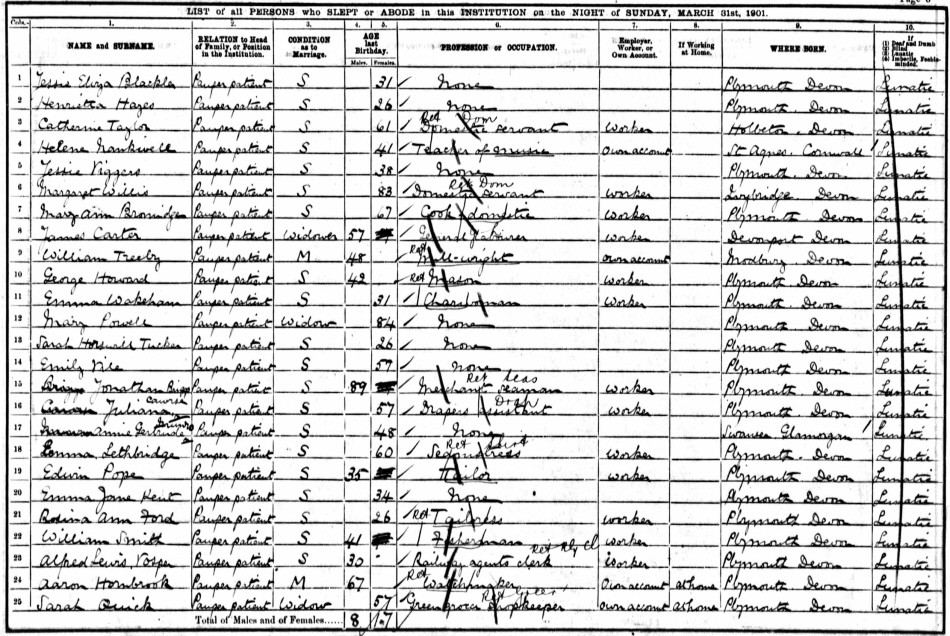 Page 8
LIST of all PERSONS who SLEPT or ABODE in this INSTITUTION on the NIGHT of SUNDAY, MARCH 31st, 1901.
1. 2. 3. 4. 5. 6. 7. 8. 9. 10.
NAME and SURNAME. RELATION to Head of Family, or Position in the Institution. CONDITION as to Marriage. AGE last Birthday. Males. Females. PROFESSION or OCCUPATION. Employer, Worker, or Own Account. If Working at Home. WHERE BORN. (1) Deaf and Dumb (2) Blind (3) Lunatic (4) Imbecile, Feeble-minded.
1 Jessie Eliza Blackler Pauper patient S 31 None Plymouth Devon Lunatic
2 Henrietta Hayes Pauper patient S 26 None Plymouth Devon Lunatic
3 Catherine Taylor Pauper patient S 61 Ret Dom Domestic servant Worker Holbeton Devon Lunatic
4 Helena Nankivell Pauper patient S 41 Teacher of music Own account St Agnes Cornwall Lunatic
5 Jessie Viggers Pauper patient S 38 None Plymouth Devon Lunatic
6 Margaret Willis Pauper patient S 83 Ret Dom Domestic Servant Worker Ivybridge Devon Lunatic
7 Mary Ann Pauper patient S 67 Cook domestic Worker Plymouth Devon Lunatic
8 James Carter Pauper patient Widower 57 General labourer Worker Devonport Devon Lunatic
9 William Treeby Pauper patient M 48 Ret Mill-wright Own account Modbury Devon Lunatic
10 George Howard Pauper patient S 42 Ret Mason Worker Plymouth Devon Lunatic
11 Emma Wakeham Pauper patient S 31 Charwoman Worker Plymouth Devon Lunatic
12 Mary Powell Pauper patient Widow 84 None Plymouth Devon Lunatic
13 Sarah Horswill Tucker Pauper patient S 26 None Plymouth Devon Lunatic
14 Emily Vile Pauper patient S 57 None Plymouth Devon Lunatic
15 Briggs Jonathan Briggs Pauper patient S 89 Ret Seas Merchant Seaman Worker Plymouth Devon Lunatic
16 Juliana Pauper patient S 57 Drap Drapers Assistant Worker Plymouth Devon Lunatic
17 Annie Gertrude Pauper patient S 48 None Swansea Glamorgan Lunatic
18 Emma Lethbridge Pauper patient S 60 Ret Seamstress Worker Plymouth Devon Lunatic
19 Edwin Pope Pauper patient S 35 Tailor Worker Plymouth Devon Lunatic
20 Emma Jane Kent Pauper patient S 34 None Plymouth Devon Lunatic
21 Rosina Ann Ford Pauper patient S 26 Ret Tailress Worker Plymouth Devon Lunatic
22 William Smith Pauper patient S 41 Fisherman Worker Plymouth Devon Lunatic
23 Alfred Lewis Vosper Pauper patient S 30 Ret Rly Cl Railway agents clerk Worker Plymouth Devon Lunatic
24 Aaron Hornbrook Pauper patient M 67 Ret Watchmaker Own account at home Plymouth Devon Lunatic
25 Sarah Quick Pauper patient Widow 57 Ret Greengrocer Shopkeeper Own account at home Plymouth Devon Lunatic
Total of Males and of Females...... 8 17